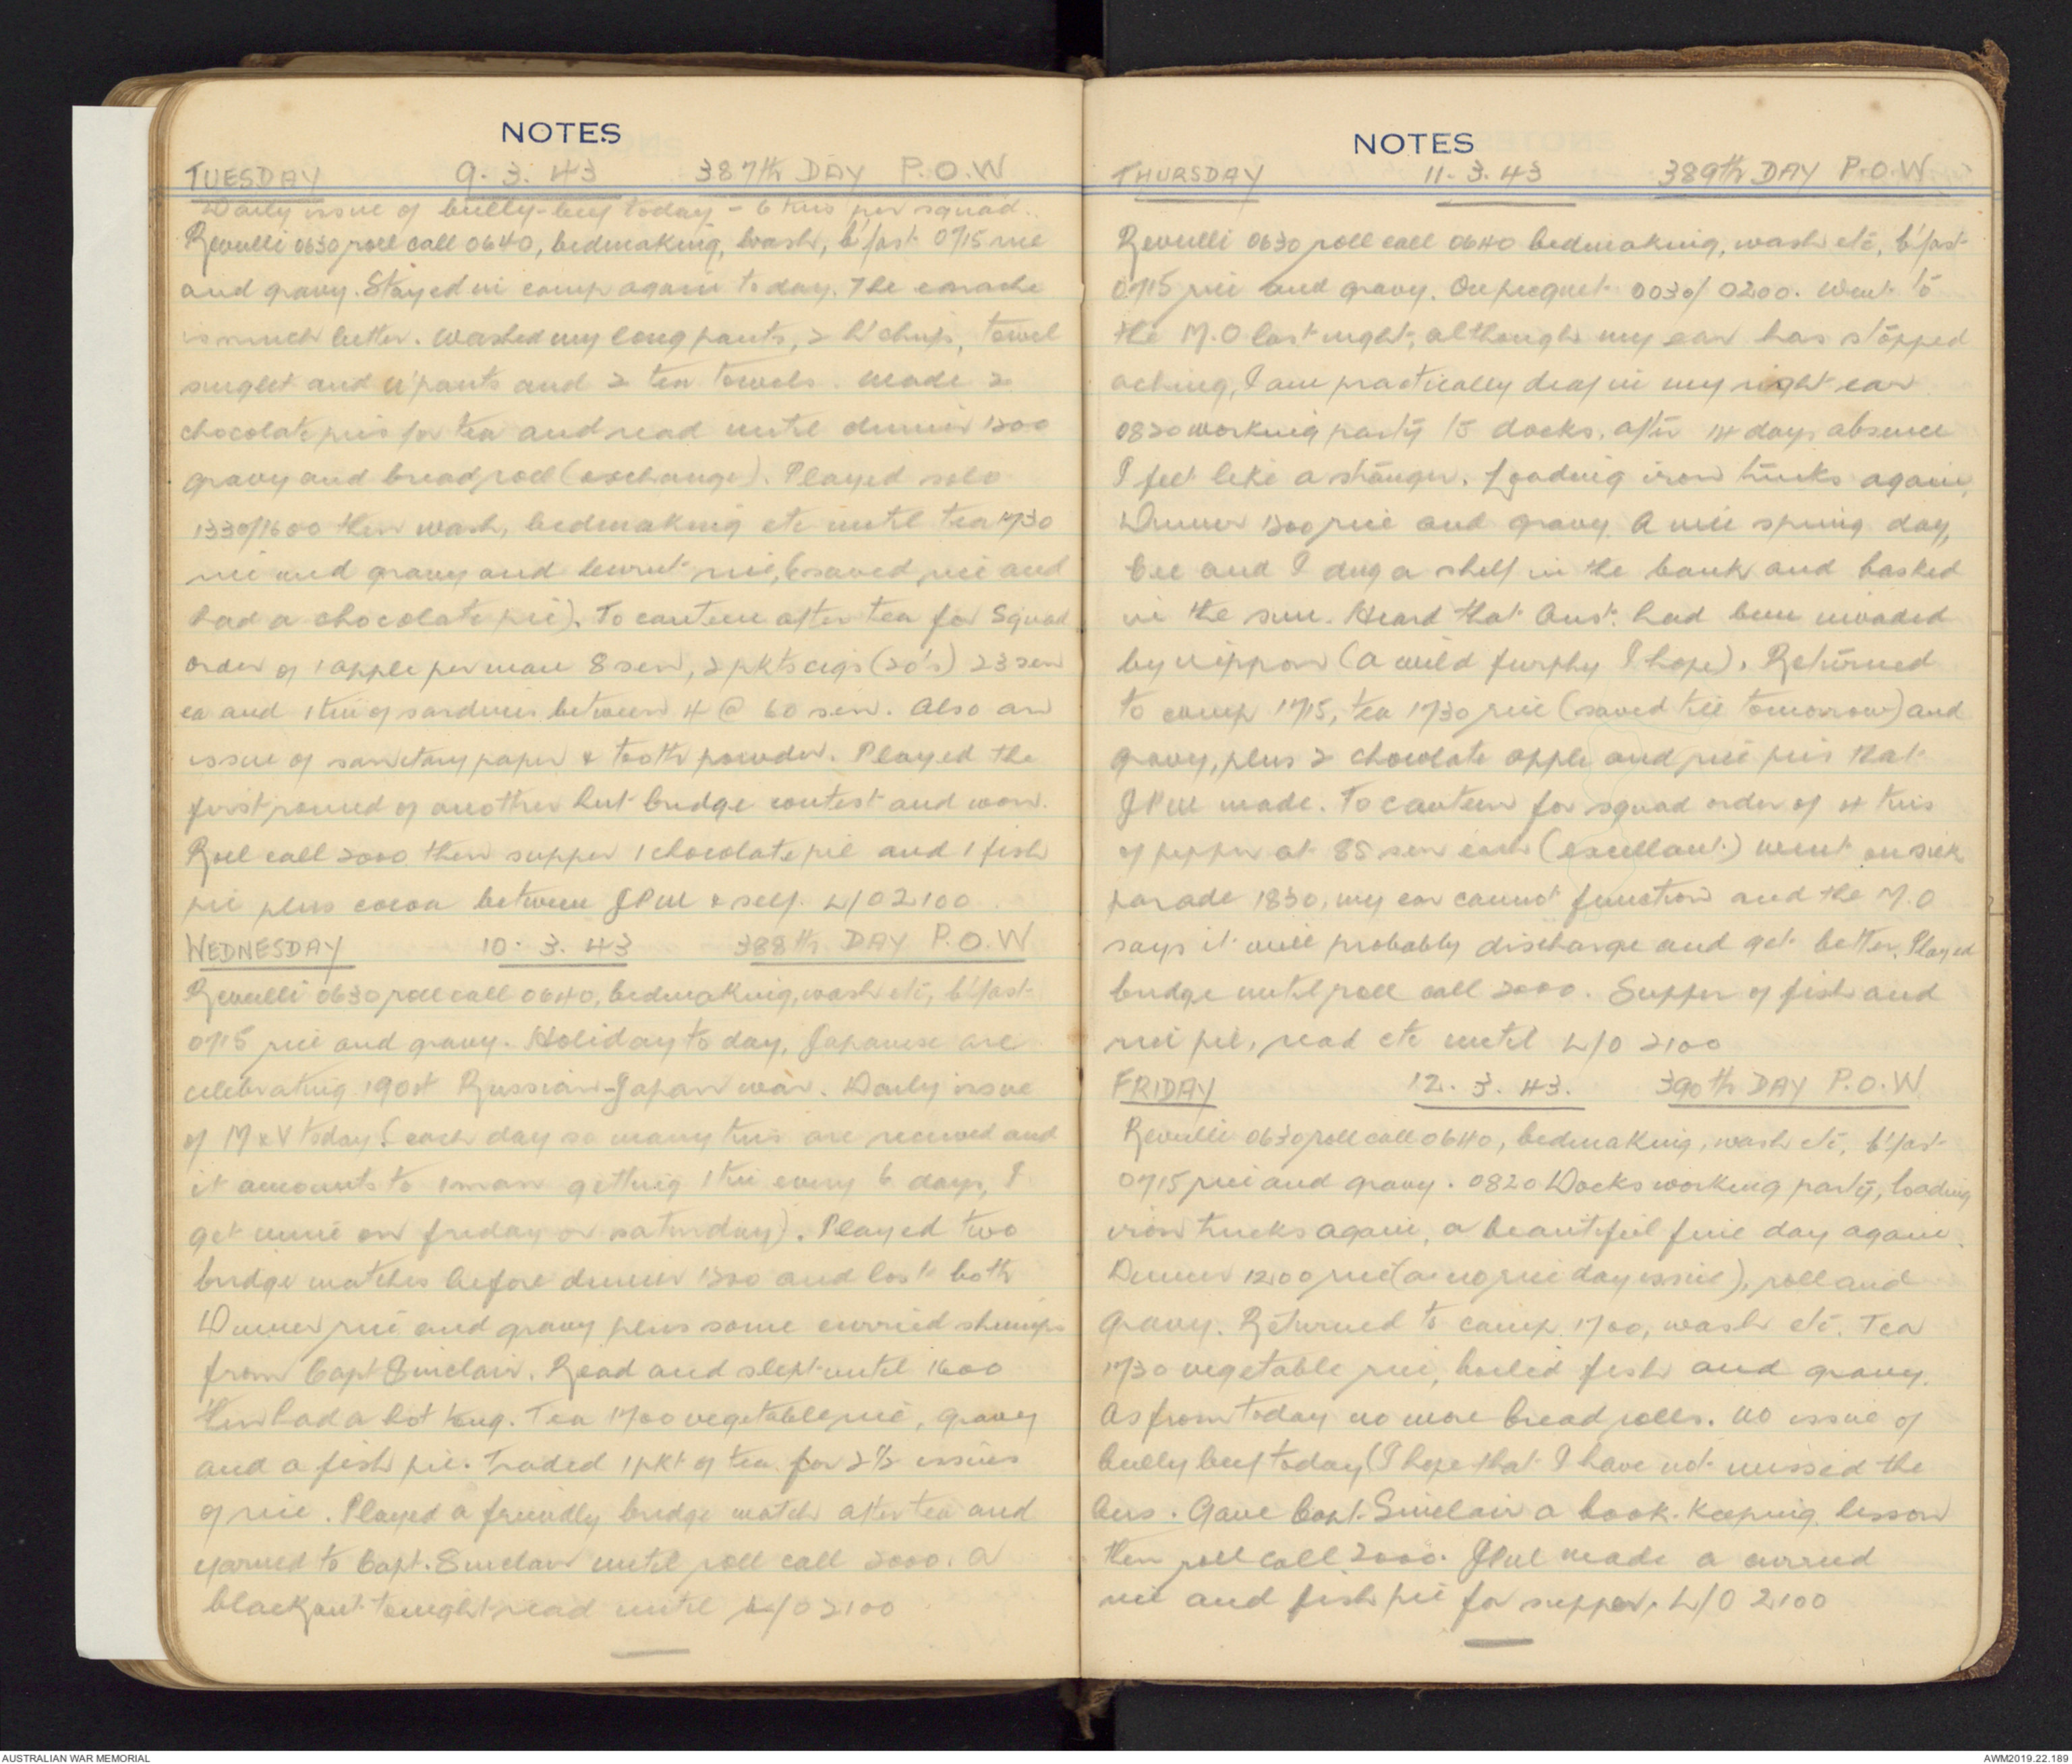 NOTES
TUESDAY 9. 3. 43 387th DAY P.O.W
Daily issue of bully-beef today - 6 tins per squad.
Revulli 0630 roll call 0640, bedmaking, wash, b'fast 0715 rice
and gravy. Stayed in camp again today. The earache
is much better. Washed my long pants, 2 h'chiefs, towel
singlet and u'pants and 2 tea towels. Made 2
chocolate pies for tea and read until dinner 1200
gravy and bread roll (exchange). Played solo
1330/1600 then wash, bedmaking etc until tea 1730
rice and gravy and burnt rice, (saved rice and
had a chocolate pie). To canteen after tea for Squad
order of 1 apple per man 8 sen, 2 pkts cigs (20's) 23 sen
ea and 1 tin of sardines between 4 @ 60 sen. Also an
issue of sanitary paper & tooth powder. Played the
first round of another hut bridge contest and won.
Roll call 2000 then supper 1 chocolate pie and 1 fish
pie plus cocoa between & self. L/O 2100
WEDNESDAY 10. 3. 43 388th DAY P.O.W
Revulli 0630 roll call 0640, bedmaking, wash etc, b'fast
0715 rice and gravy. Holiday to day, Japanese are
celebrating 1904 Russian-Japan war. Daily issue
of M & V today (each day so many tins are received and
it amounts to 1 man getting 1 tin every 6 days, I
get mine on friday or saturday). Played two
bridge matches before dinner 1200 and lost both
Dinner rice and gravy plus some curried shrimps
from Capt Sinclair. Read and slept until 1600
then had a hot tong. Tea 1700 vegetable rice, gravy
and a fish pie. Traded 1 pkt of tea for 2½ issues
of rice. Played a friendly bridge match after tea and
yarned to Capt. Sinclair until roll call 2000. A
blackout tonight read until L/O 2100
NOTES
THURSDAY 11. 3. 43 389th DAY P.O.W
Revulli 0630 roll call 0640 bedmaking, wash etc, b'fast
0715 rice and gravy. On picquet 0030/0200. Went to
the M.O last night, although my ear has stopped
aching, I am practically deaf in my right ear
0820 working party to docks, after 14 days absence
I feel like a stranger. Loading iron trucks again,
Dinner 1200 rice and gravy. A nice spring day,
Cec and I dug a shelf in the bank and basked
in the sun. Heard that Aust. had been invaded
by nippon (a wild furphy I hope). Returned
to camp 1715, tea 1730 rice (saved till tomorrow) and
gravy, plus 2 chocolate apple and rice pies that
made. To canteen for squad order of 4 tins
of pepper at 85 sen each (excellant) went on sick
parade 1830, my ear cannot function and the M.O
says it will probably discharge and get better. Played
bridge until roll call 2000. Supper of fish and
rice pie, read etc until L/O 2100
FRIDAY 12. 3. 43. 390th DAY P.O.W
Revulli 0630 roll call 0640, bedmaking, wash etc, b'fast
0715 rice and gravy. 0820 Docks working party, loading
iron trucks again, a beautiful fine day again.
Dinner 1200 rice (a no rice day issue), roll and
gravy. Returned to camp 1700, wash etc. Tea
1730 vegetable rice, boiled fish and gravy.
As from today no more bread rolls. No issue of
bully beef today (I hope that I have not missed the
bus. Gave Capt. Sinclair a book-keeping lesson
then roll call 2000. made a curried
rice and fish pie for supper, L/O 2100
AUSTRALIAN WAR MEMORIAL
AWM2019.22.189